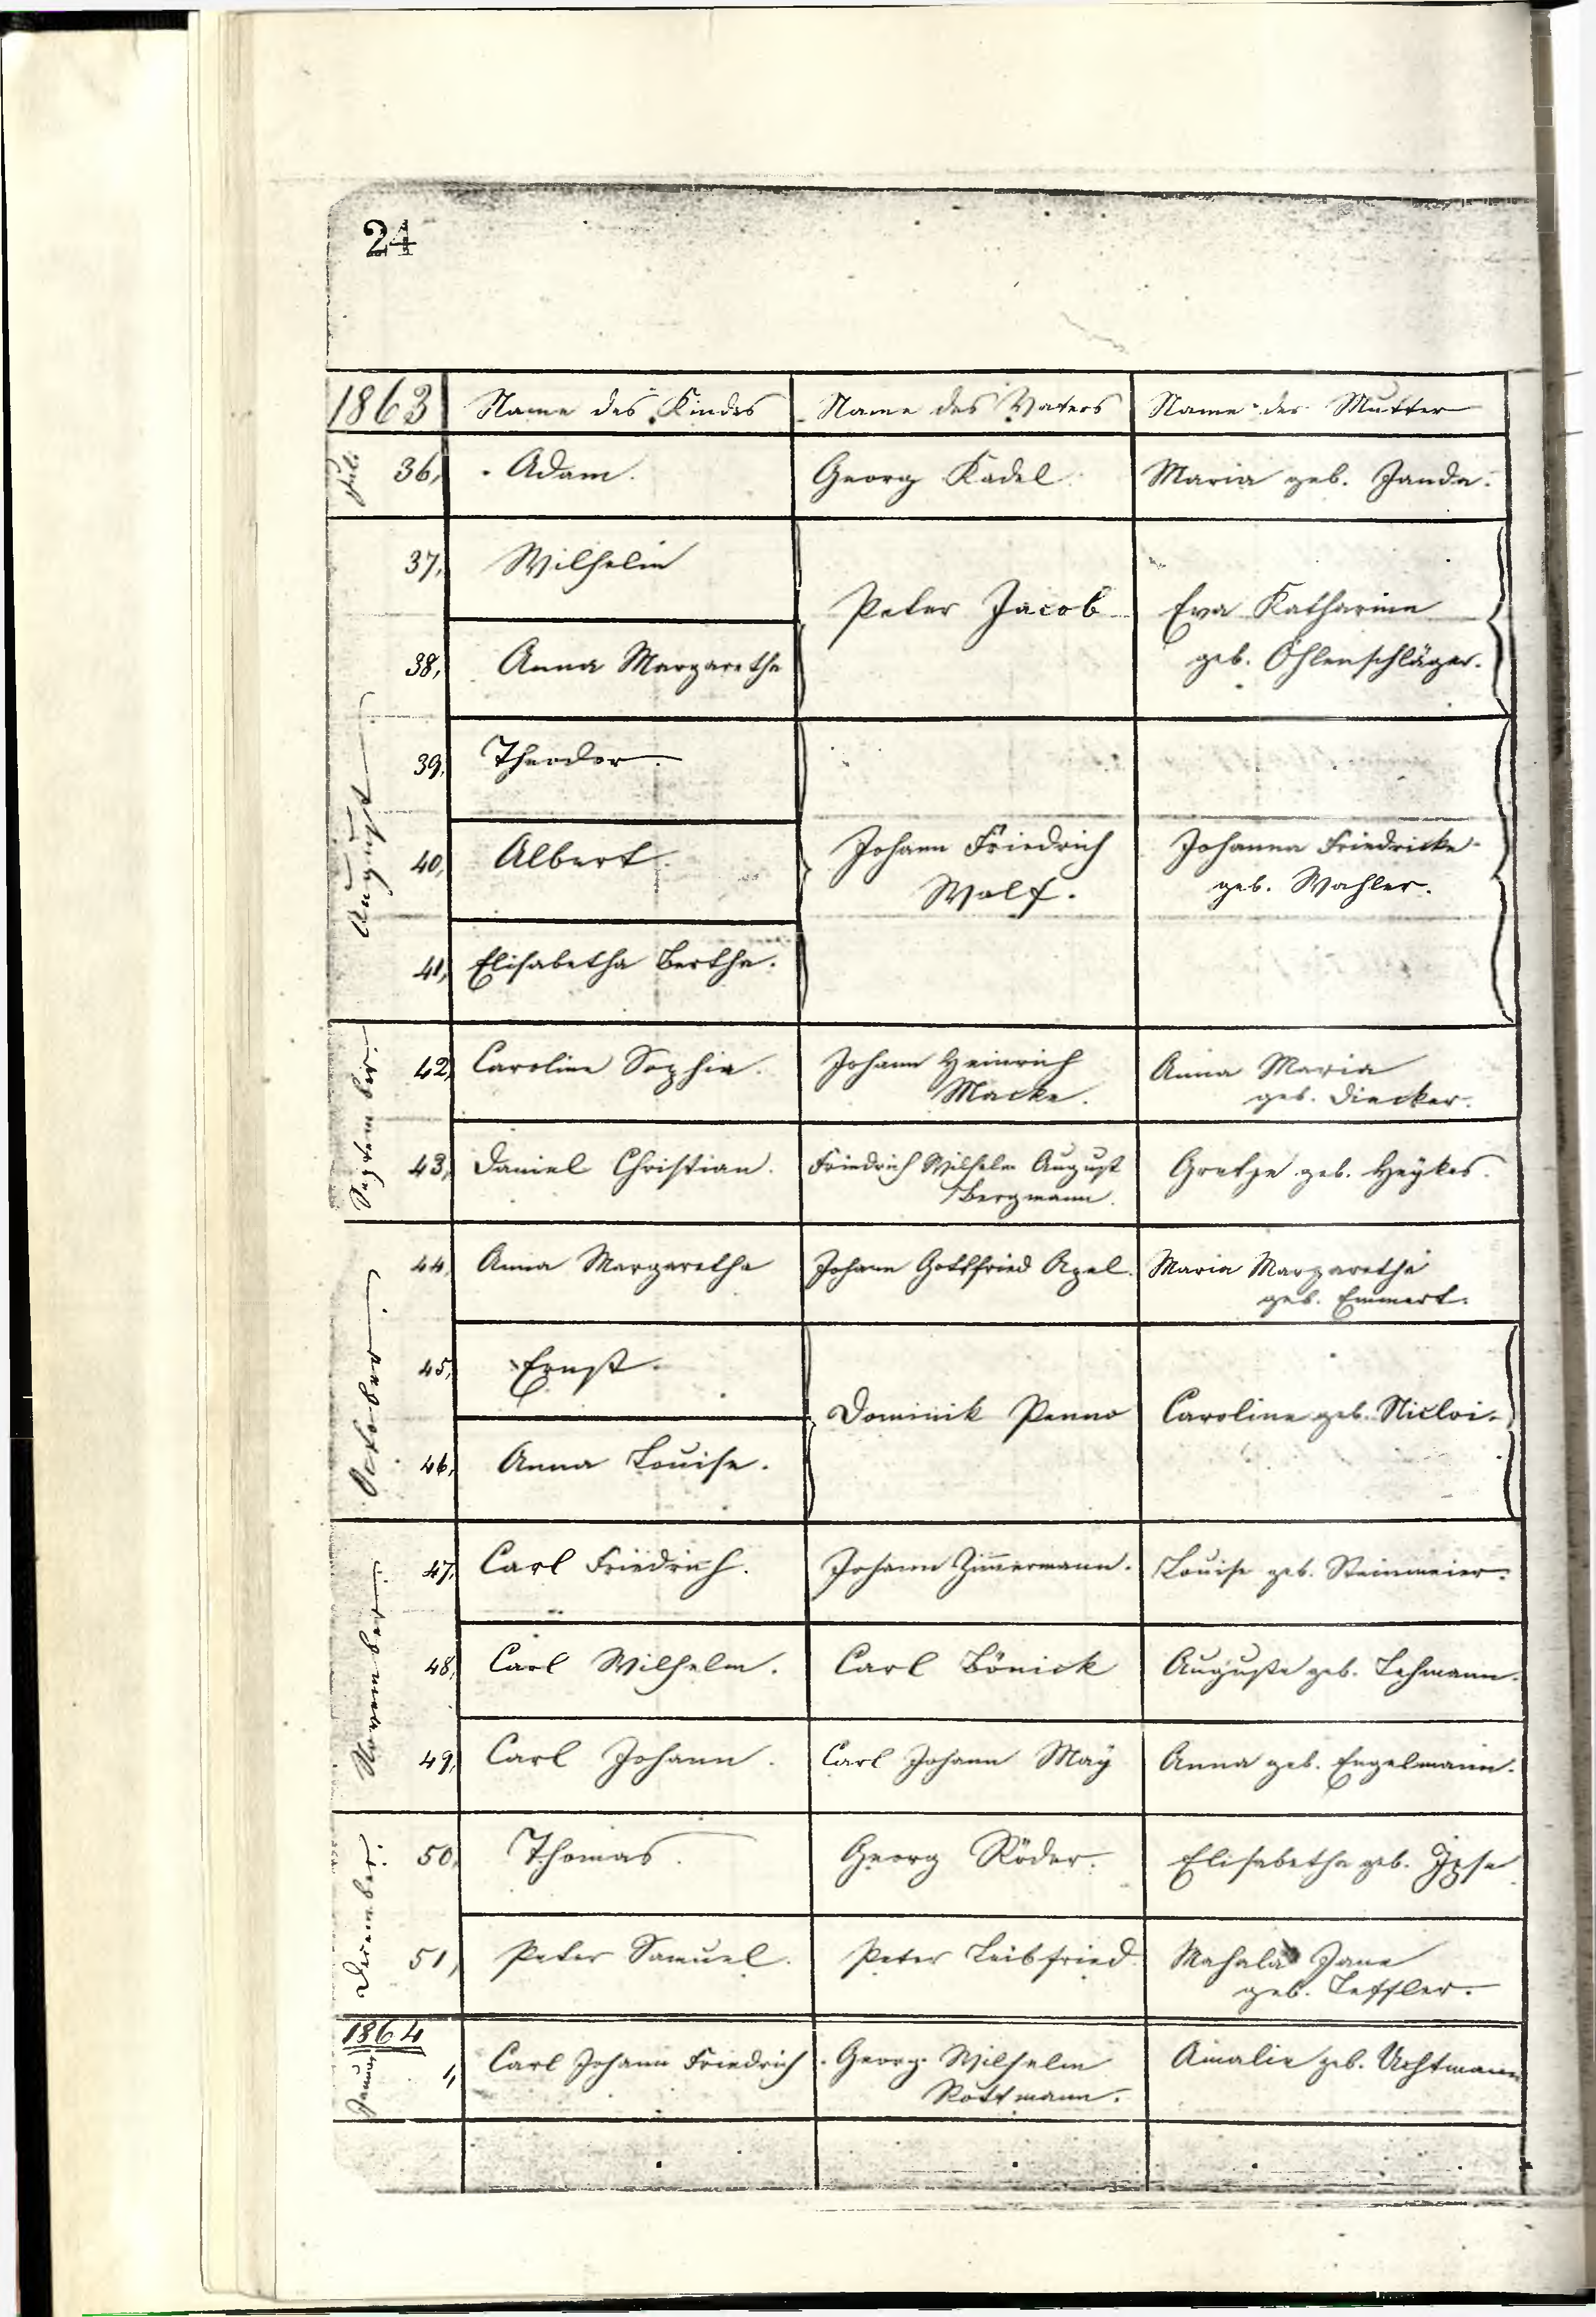 24
1863 Name des Kindes Name des Vaters Name der Mutter
Juli. 36, Adam. Georg Kadel. Maria geb. Janda.
August.
37, Wilhelm
Peter Jacob Eva Katharina
38, Anna Margaretha geb. Öhlenschläger.
39, Theodor.
40, Albert. Johann Friedrich Johanna Friedricke
Wolf. geb. Wahler.
41, Elisabetha Bertha.
September.
42, Caroline Sophia. Johann Heinrich Anna Maria
Macke. geb. Diecker.
43, Daniel Christian. Friedrich Wilhelm August Gretje geb. Heÿkes.
Bergmann.
October.
44, Anna Margaretha Johann Gottfried Apel. Maria Margaretha
geb. Emmert.
45, Ernst.
Dominik Penno Caroline geb. Nicloi.
46, Anna Louise.
November.
47, Carl Friedrich. Johann Zimmermann. Louise geb. Steinmeier.
48, Carl Wilhelm. Carl Bönick Auguste geb. Lehmann.
49, Carl Johann. Carl Johann Maÿ Anna geb. Engelmann.
December.
50, Thomas. Georg Röder. Elisabetha geb. Ipse
51, Peter Samuel. Peter Leibfried. Mahala Jane
geb. Leffler.
1864
Januar
1, Carl Johann Friedrich Georg Wilhelm Amalie geb. Uchtmann
Rottmann.